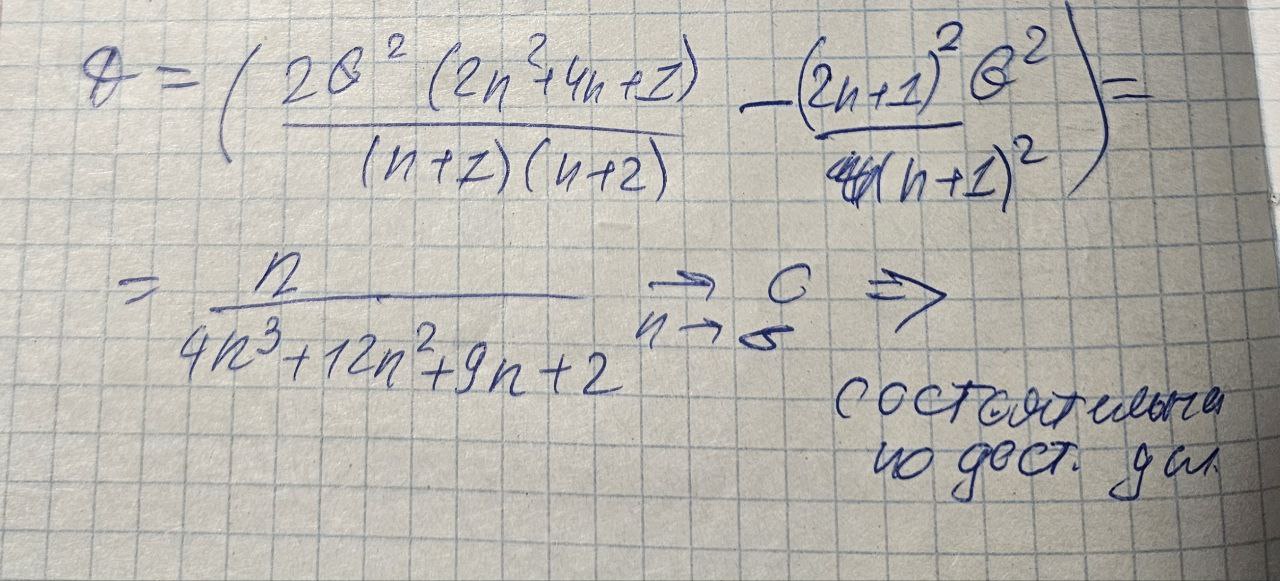 θ = ( 2θ² (2n²+4n+1) / (n+1)(n+2) − (2n+1)² θ² / (n+1)² ) =
= n / 4n³+12n²+9n+2 → 0 ⇒
n →
состоятельна
по дост. усл.